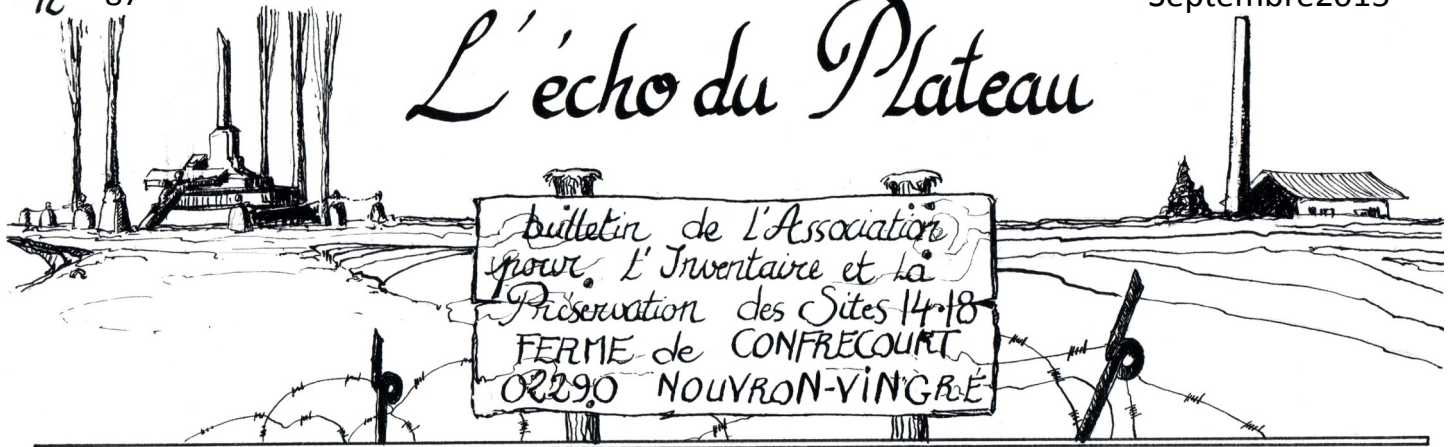 n° 87
Septembre2015
L'écho du Plateau
bulletin de l'Association
pour l'Inventaire et la
Préservation des Sites 14-18
FERME de CONFRECOURT
02290 NOUVRON-VINGRÉ